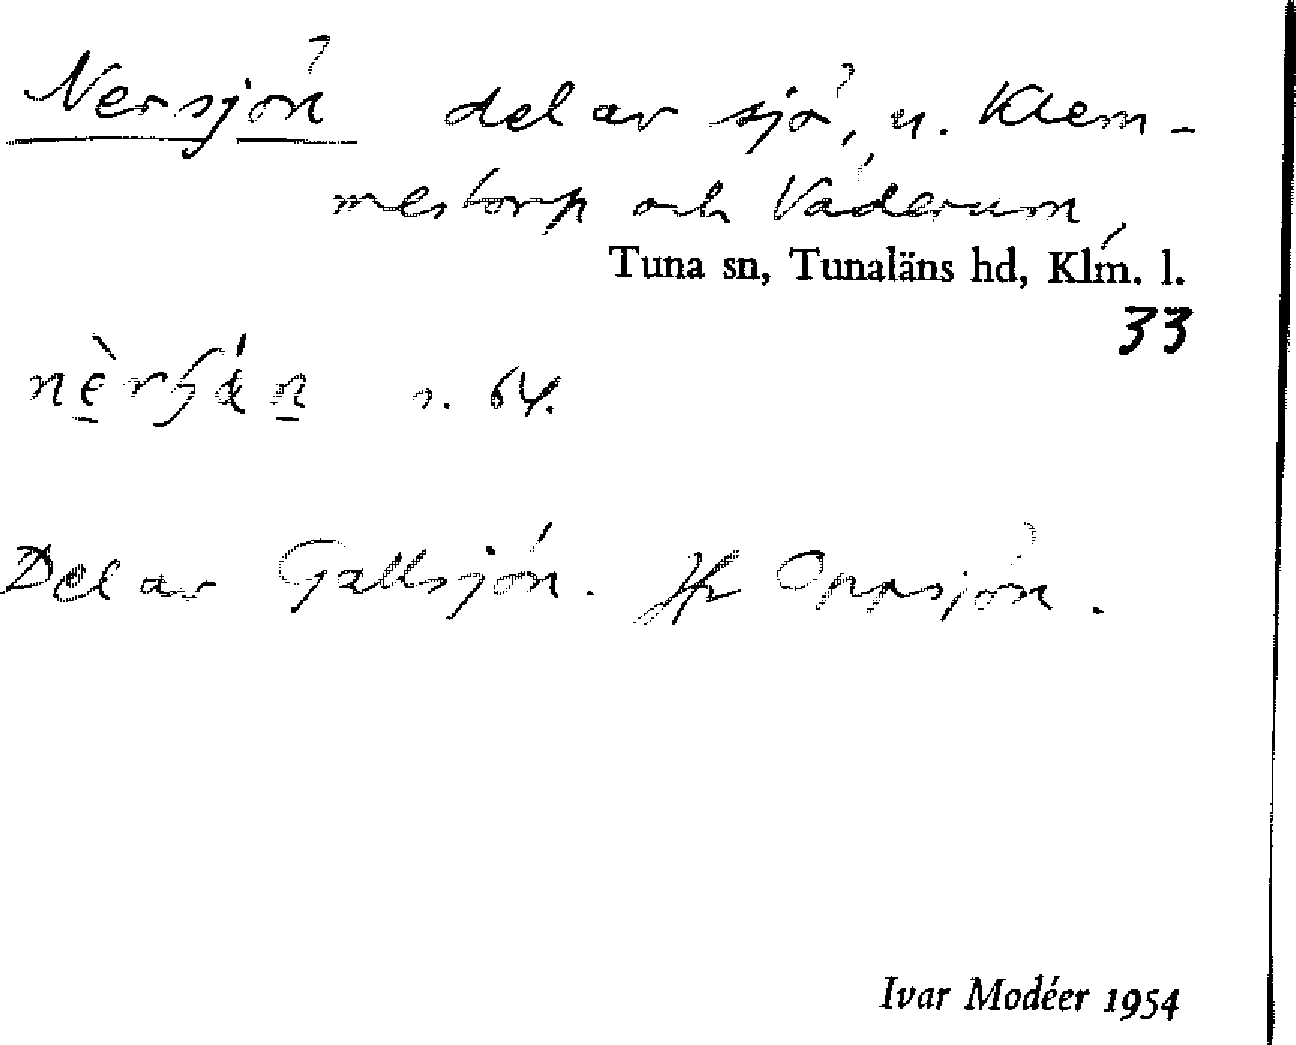 Nersjön del av sjö, u. Klem-
mestorp och Väderum,
Tuna sn, Tunaläns hd, Klm. l.
33
s. 64.
Del av Gallsjön. Jfr Oppsjön.
Ivar Modéer 1954